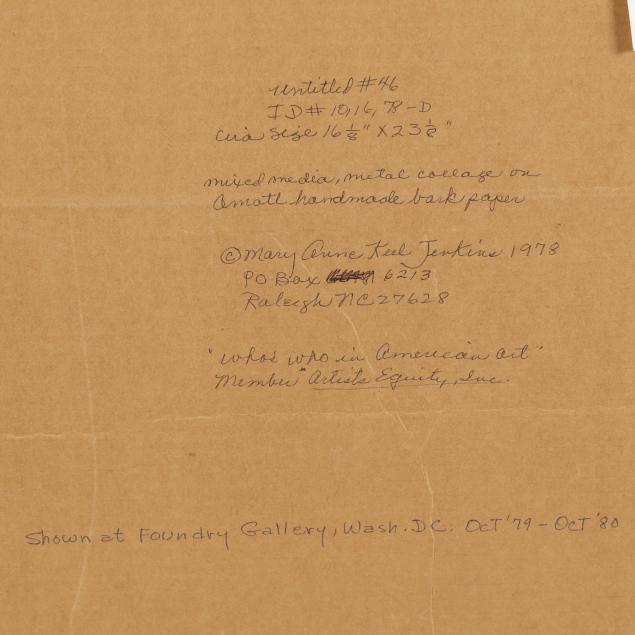 untitled #46
ID# 10,16,78-D
size 16 ½" X 23 ½"
mixed media, metal collage on
Amatl handmade bark paper
© Mary Anne Keel Jenkins 1978
PO Box 6213
Raleigh NC 27628
"who's who in American Art"
Member "Artists Equity, Inc.
Shown at Foundry Gallery, Wash. DC. OCT '79 - OCT '80